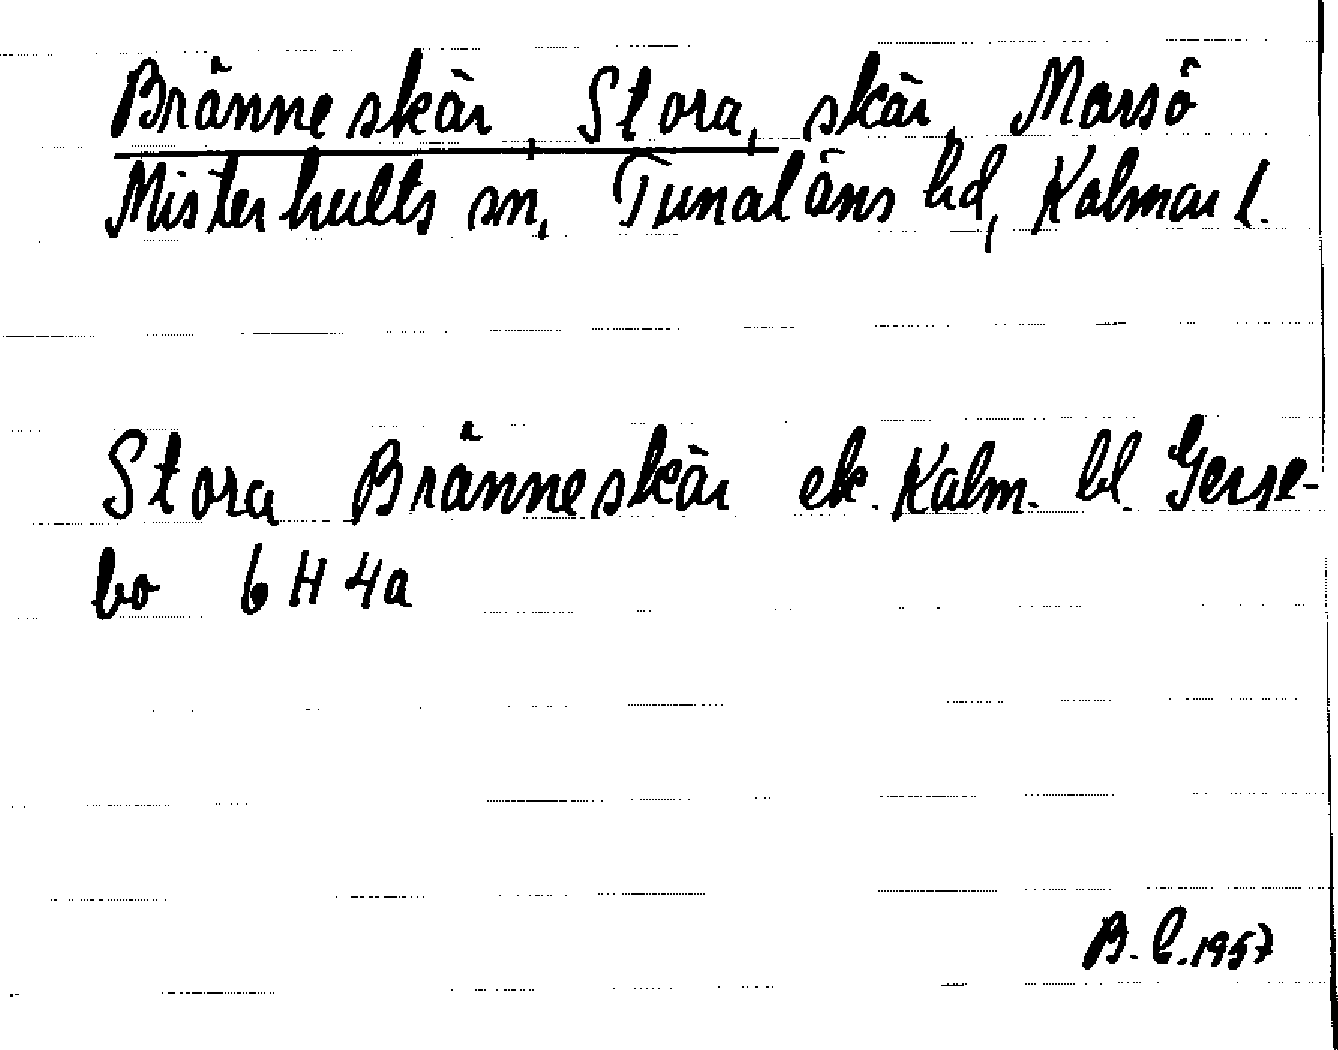 Bränneskär, Stora, skär, Marsö
Misterhults sn, Tunaläns hd, Kalmar l.
Stora Bränneskär ek. Kalm. bl Gerse-
bo 6 H 4a
B. L. 1957